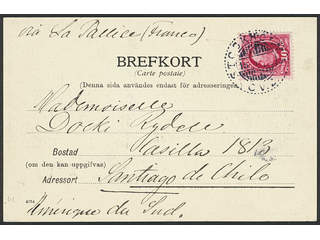 via La Pallice (France)
BREFKORT
(Carte postale)
(Denna sida användes endast för adresseringen.)
Mademoiselle
Docki Rydell
Casilla 1813
Bostad
(om den kan uppgifvas)
Santiago de Chile
Adressort
Amérique du Sud.